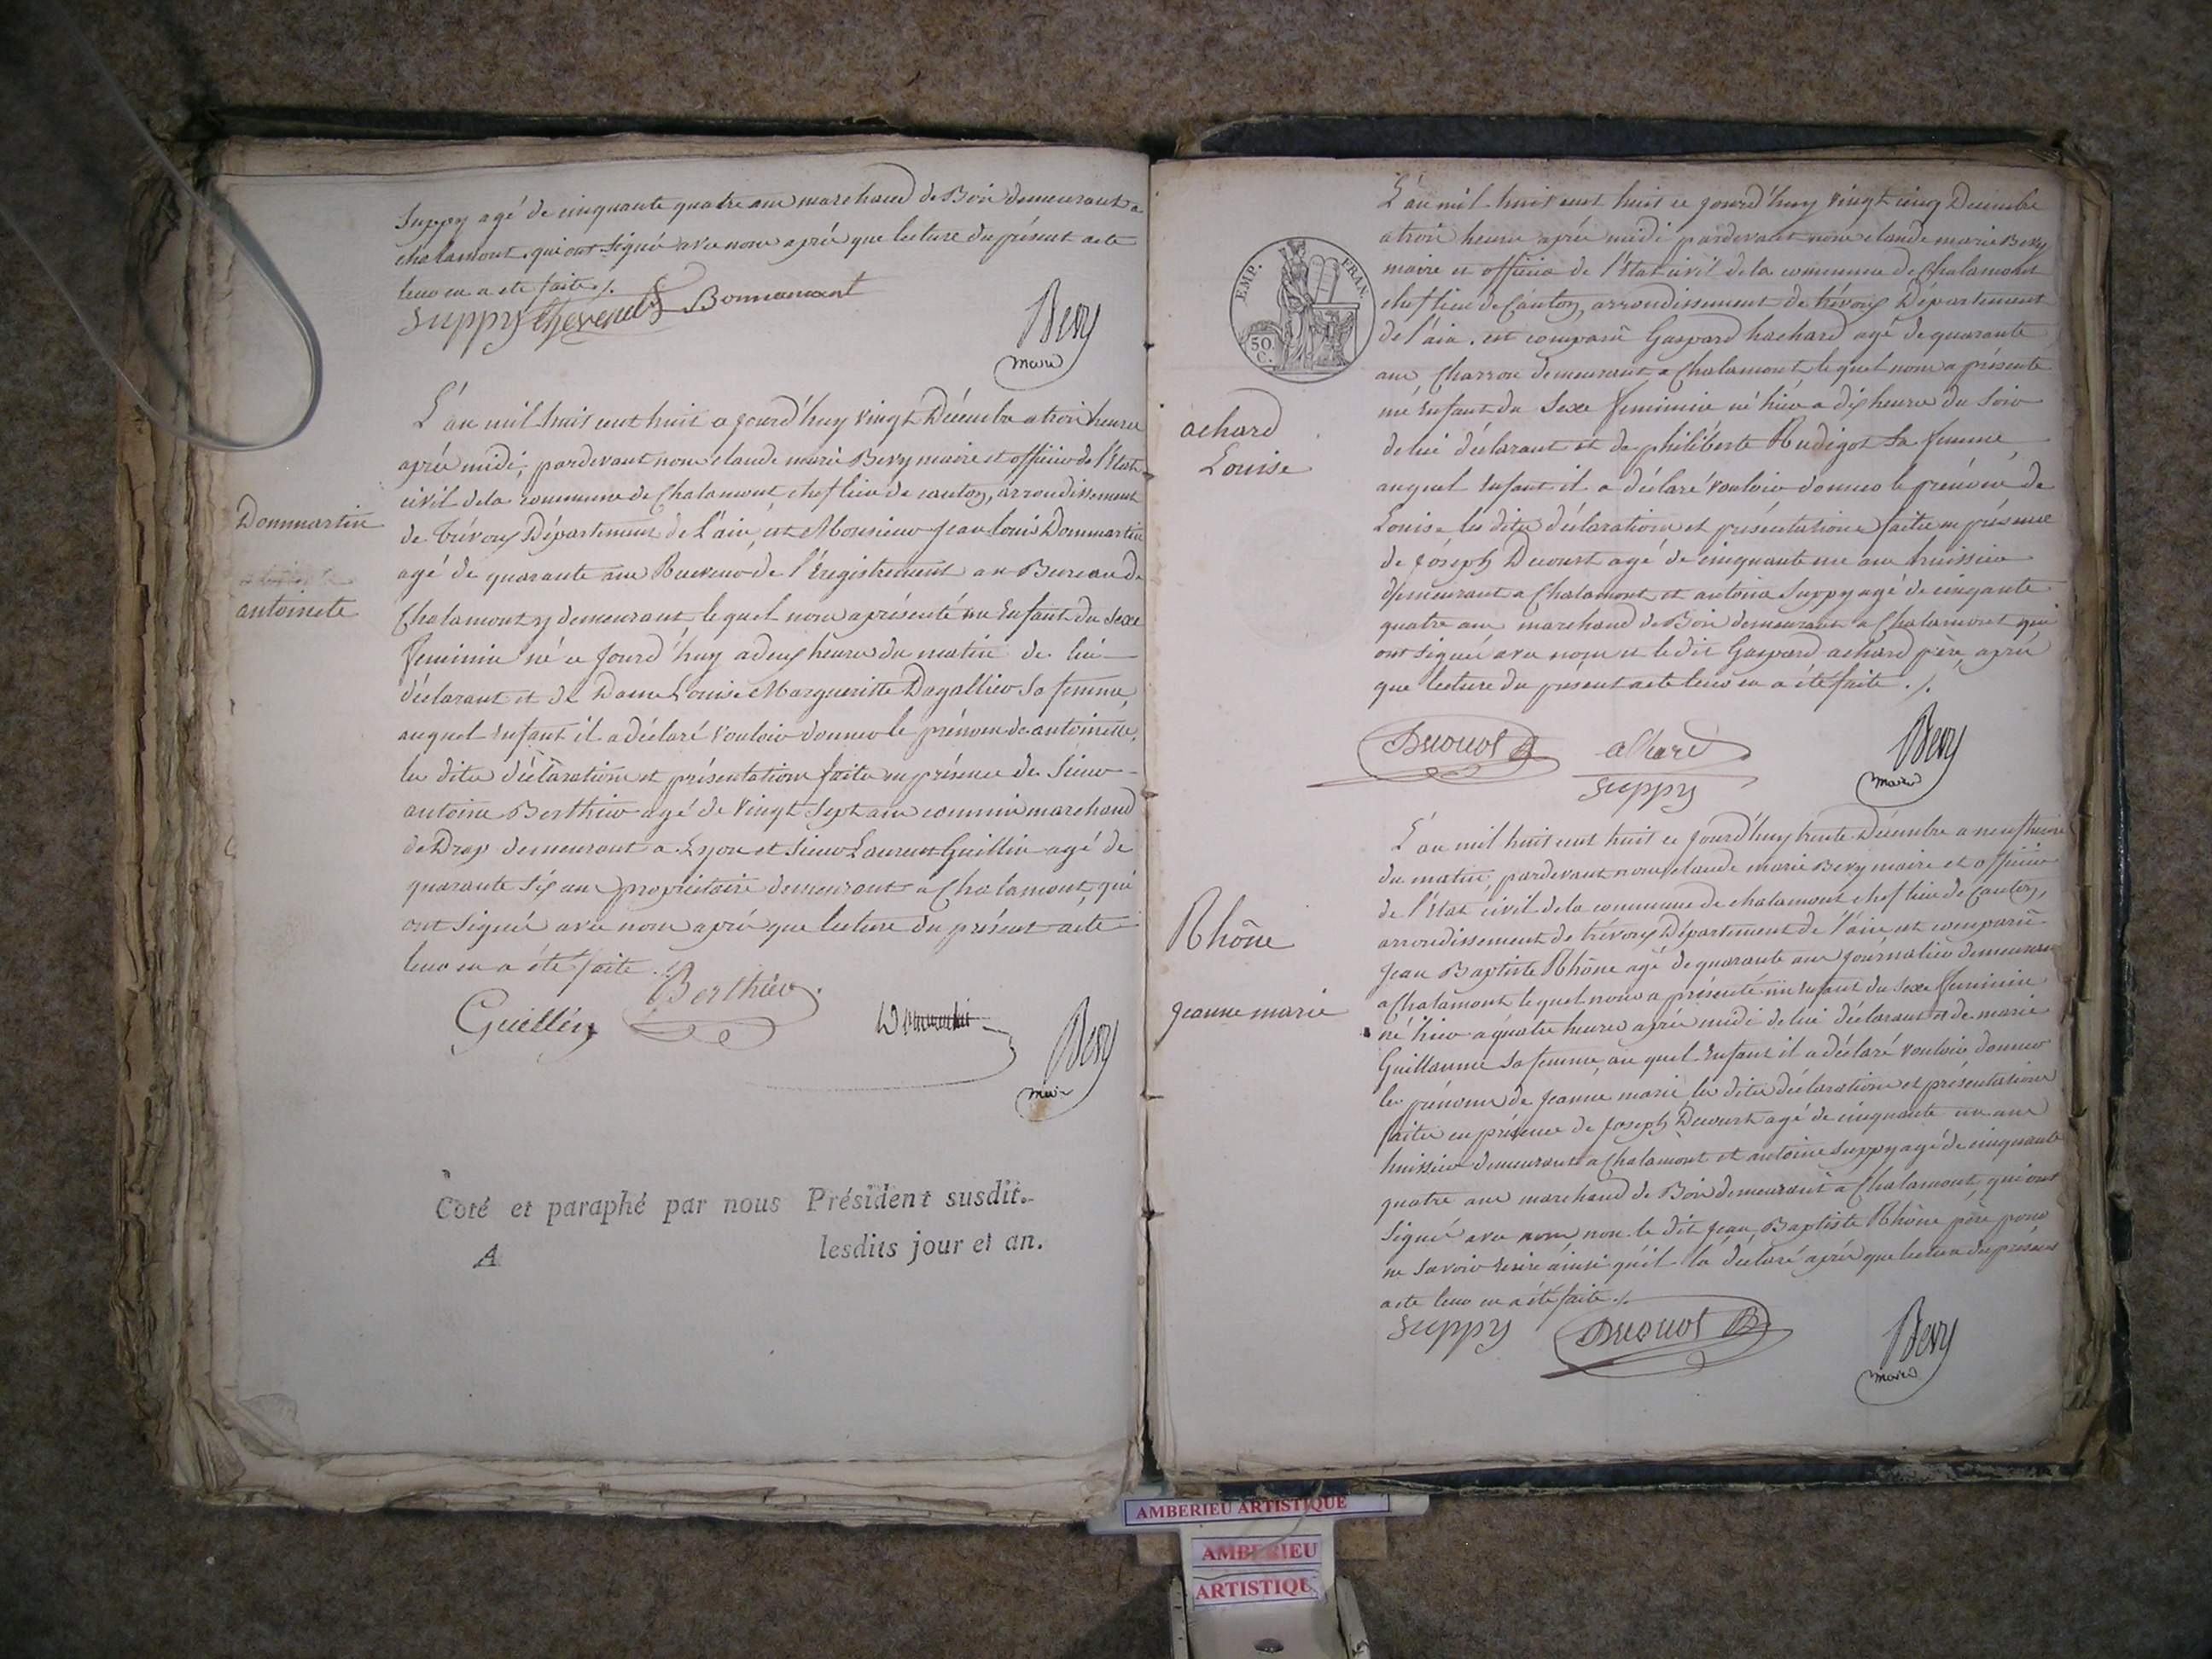 Suppy agé de cinquante quatre ans marchand de Bois demeurant a
chalamont, qui ont signé avec nous après que lecture du présent acte
leur en a été faite ./.
Suppy thevenet Bonnamant
Bevy
maire
Dommartin
antoinete
L'an mil huit cent huit ce jourd'huy vingt Décembre a trois heures
après midi, pardevant nous claude marie Bevy maire et officier de l'Etat
civil de la commune de Chalamont chef lieu de canton, arrondissement
de trévoux Département de l'ain, est Monsieur Jean Louis Dommartin
agé de quarante ans Receveur de l'Enregistrement au Bureau de
Chalamont y demeurant le quel nous a présenté un Enfant du Sexe
feminin né ce jourd'huy a deux heures du matin de lui
déclarant et de Dame Louise Margueritte Dagallier Sa femme,
auquel Enfant il a déclaré vouloir donner le prénom de antoinette,
les dites déclaration et présentation faites en présence de Sieur
antoine Berthier agé de vingt Sept ans commis marchand
de Drap demeurant a Lyon et Sieur Laurent Guillin agé de
quarante Six ans propriétaire demeurant a Chalamont, qui
ont signé avec nous après que lecture du présent acte
leur en a été faite ./.
Guillin Berthier Dommartin Bevy
maire
Coté et paraphé par nous Président susdit.
A lesdits jour et an.
EMP. FRAN.
50 C.
achard
Louise
L'an mil huit cent huit ce jourd'huy vingt cinq Décembre
a trois heures après midi pardevant nous claude marie Bevy
maire et officier de l'Etat civil de la commune de Chalamont
chef lieu de Canton, arrondissement de trévoux Département
de l'ain. est comparu Gaspard hachard agé de quarante
ans, Charron demeurant a Chalamont le quel nous a présenté
un Enfant du Sexe feminin né hier a dix heures du Soir
de lui déclarant et de philiberte Rudigoz Sa femme,
auquel Enfant il a déclaré vouloir donner le prénom de
Louise les dites déclaration et présentation faites en présence
de Joseph Ducourt agé de cinquante un ans huissier
demeurant a Chalamont et antoine Suppy agé de cinqante
quatre ans marchand de Bois demeurant a Chalamont qui
ont signé avec nous et le dit Gaspard achard père, après
que lecture du présent acte leur en a été faite ./.
achard
Suppy
Bevy
maire
Rhône
jeanne marie
L'an mil huit cent huit ce jourd'huy trente Décembre a neuf heures
du matin, pardevant nous claude marie Bevy maire et officier
de l'Etat civil de la commune de chalamont chef lieu de Canton,
arrondissement de trévoux Département de l'ain est comparu
Jean Baptiste Rhône agé de quarante ans journalier demeurant
a Chalamont le quel nous a présenté un Enfant du Sexe feminin
né hier a quatre heures après midi de lui déclarant et de marie
Guillaume Sa femme, au quel Enfant il a déclaré vouloir donner
les prénoms de jeanne marie les dites déclaration et présentation
faites en présence de joseph Ducourt agé de cinquante un ans
huissier demeurant a Chalamont et antoine Suppy agé de cinquante
quatre ans marchand de Bois demeurant a Chalamont, qui ont
signé avec nous non le dit Jean Baptiste Rhône père pour
ne savoir Ecrire ainsi qu'il l'a déclaré après que lecture du présent
acte leur en a été faite ./.
Suppy
Bevy
maire
AMBERIEU ARTISTIQUE
AMBERIEU
ARTISTIQUE